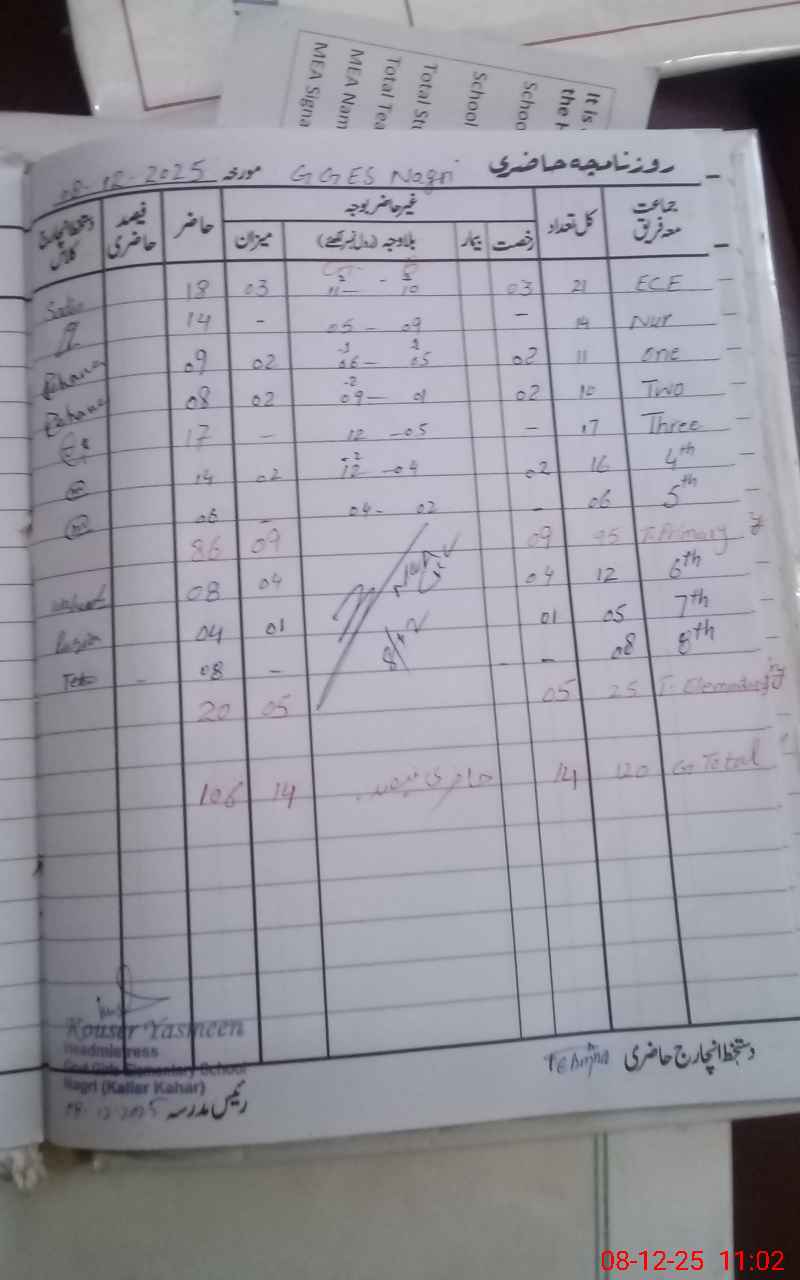 It is
the H
Schoo
School
Total St
Total Tea
MEA Nam
MEA Signa
روزنامچہ حاضری GGES Nagri مورخہ 08-12-2025
جماعت معہ فریق کل تعداد غیر حاضر بوجہ حاضر فیصد حاضری دستخط انچارج کلاس
رخصت بیمار بلاوجہ (رول نمبر لکھیے) میزان
ECE 21 03 11 - 10 03 18 Sadia
Nur 14 - 05 - 09 - 14
One 11 02 06 - 05 02 09 Rehana
Two 10 02 09 - 01 02 08 Rehana
Three 17 - 12 - 05 - 17
4th 16 02 12 - 04 02 14
5th 06 - 04 - 02 - 06
T. Primary 95 09 09 86
6th 12 04 04 08
7th 05 01 01 04
8th 08 - - 08
T. Elementary 25 05 05 20
G Total 120 14 14 106
دستخط انچارج حاضری
Kouser Yasmeen
Headmistress
Govt Girls Elementary School
Nagri (Kallar Kahar)
رئیس مدرسہ 08-12-2025
08-12-25 11:02